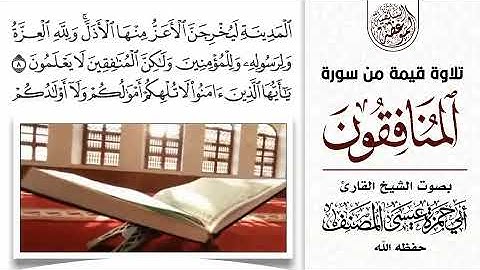 ٱلْمَدِينَةِ لَيُخْرِجَنَّ ٱلْأَعَزُّ مِنْهَا ٱلْأَذَلَّ ۚ وَلِلَّهِ ٱلْعِزَّةُ
وَلِرَسُولِهِۦ وَلِلْمُؤْمِنِينَ وَلَٰكِنَّ ٱلْمُنَٰفِقِينَ لَا يَعْلَمُونَ ٨
يَٰٓأَيُّهَا ٱلَّذِينَ ءَامَنُوا۟ لَا تُلْهِكُمْ أَمْوَٰلُكُمْ وَلَآ أَوْلَٰدُكُمْ
تلاوة قيمة من سورة
المُنَافِقُونَ
بصوت الشيخ القارئ
أبي حمزة عيسى المصنيف
حفظه الله